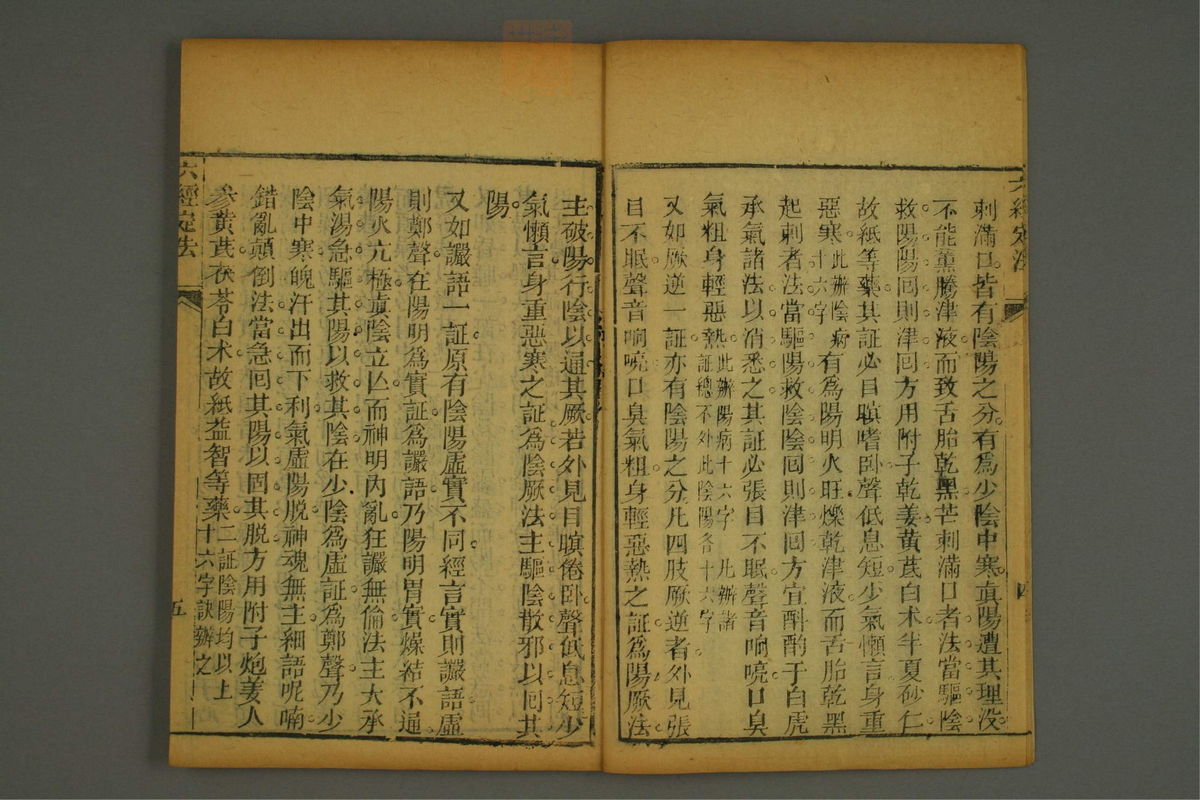 六經定法
四
刺滿口皆有陰陽之分有爲少陰中寒眞陽遭其埋没
不能薰騰津液而致舌胎乾黑芒刺滿口者法當驅陰
救陽陽囘則津囘方用附子乾姜黃芪白术半夏砂仁
故紙等藥其証必目瞑嗜卧聲低息短少氣懶言身重
惡寒此辦陰病十六字有爲陽明火旺爍乾津液而舌胎乾黑
起刺者法當驅陽救陰陰囘則津囘方宜酙酌于白虎
承氣諸法以消悉之其証必張目不眠聲音响喨口臭
氣粗身輕惡熱此辦陽病十六字凡辦諸証總不外此陰陽各十六字
又如厥逆一証亦有陰陽之分凡四肢厥逆者外見張
目不眠聲音响喨口臭氣粗身輕惡熱之証爲陽厥法
主破陽行陰以通其厥若外見目瞑倦卧聲低息短少
氣懶言身重惡寒之証爲陰厥法主驅陰散邪以囘其
陽
又如讝語一証原有陰陽虛實不同經言實則讝語虛
則鄭聲在陽明爲實証爲讝語乃陽明胃實燥結不通
陽火亢極眞陰立亾而神明內亂狂讝無倫法主大承
氣湯急驅其陽以救其陰在少陰爲虛証爲鄭聲乃少
陰中寒魄汗出而下利氣虛陽脱神魂無主細語呢喃
錯亂顛倒法當急囘其陽以固其脱方用附子炮姜人
參黃芪茯苓白术故紙益智等藥二証陰陽均以上十六字訣辦之
六經定法
五